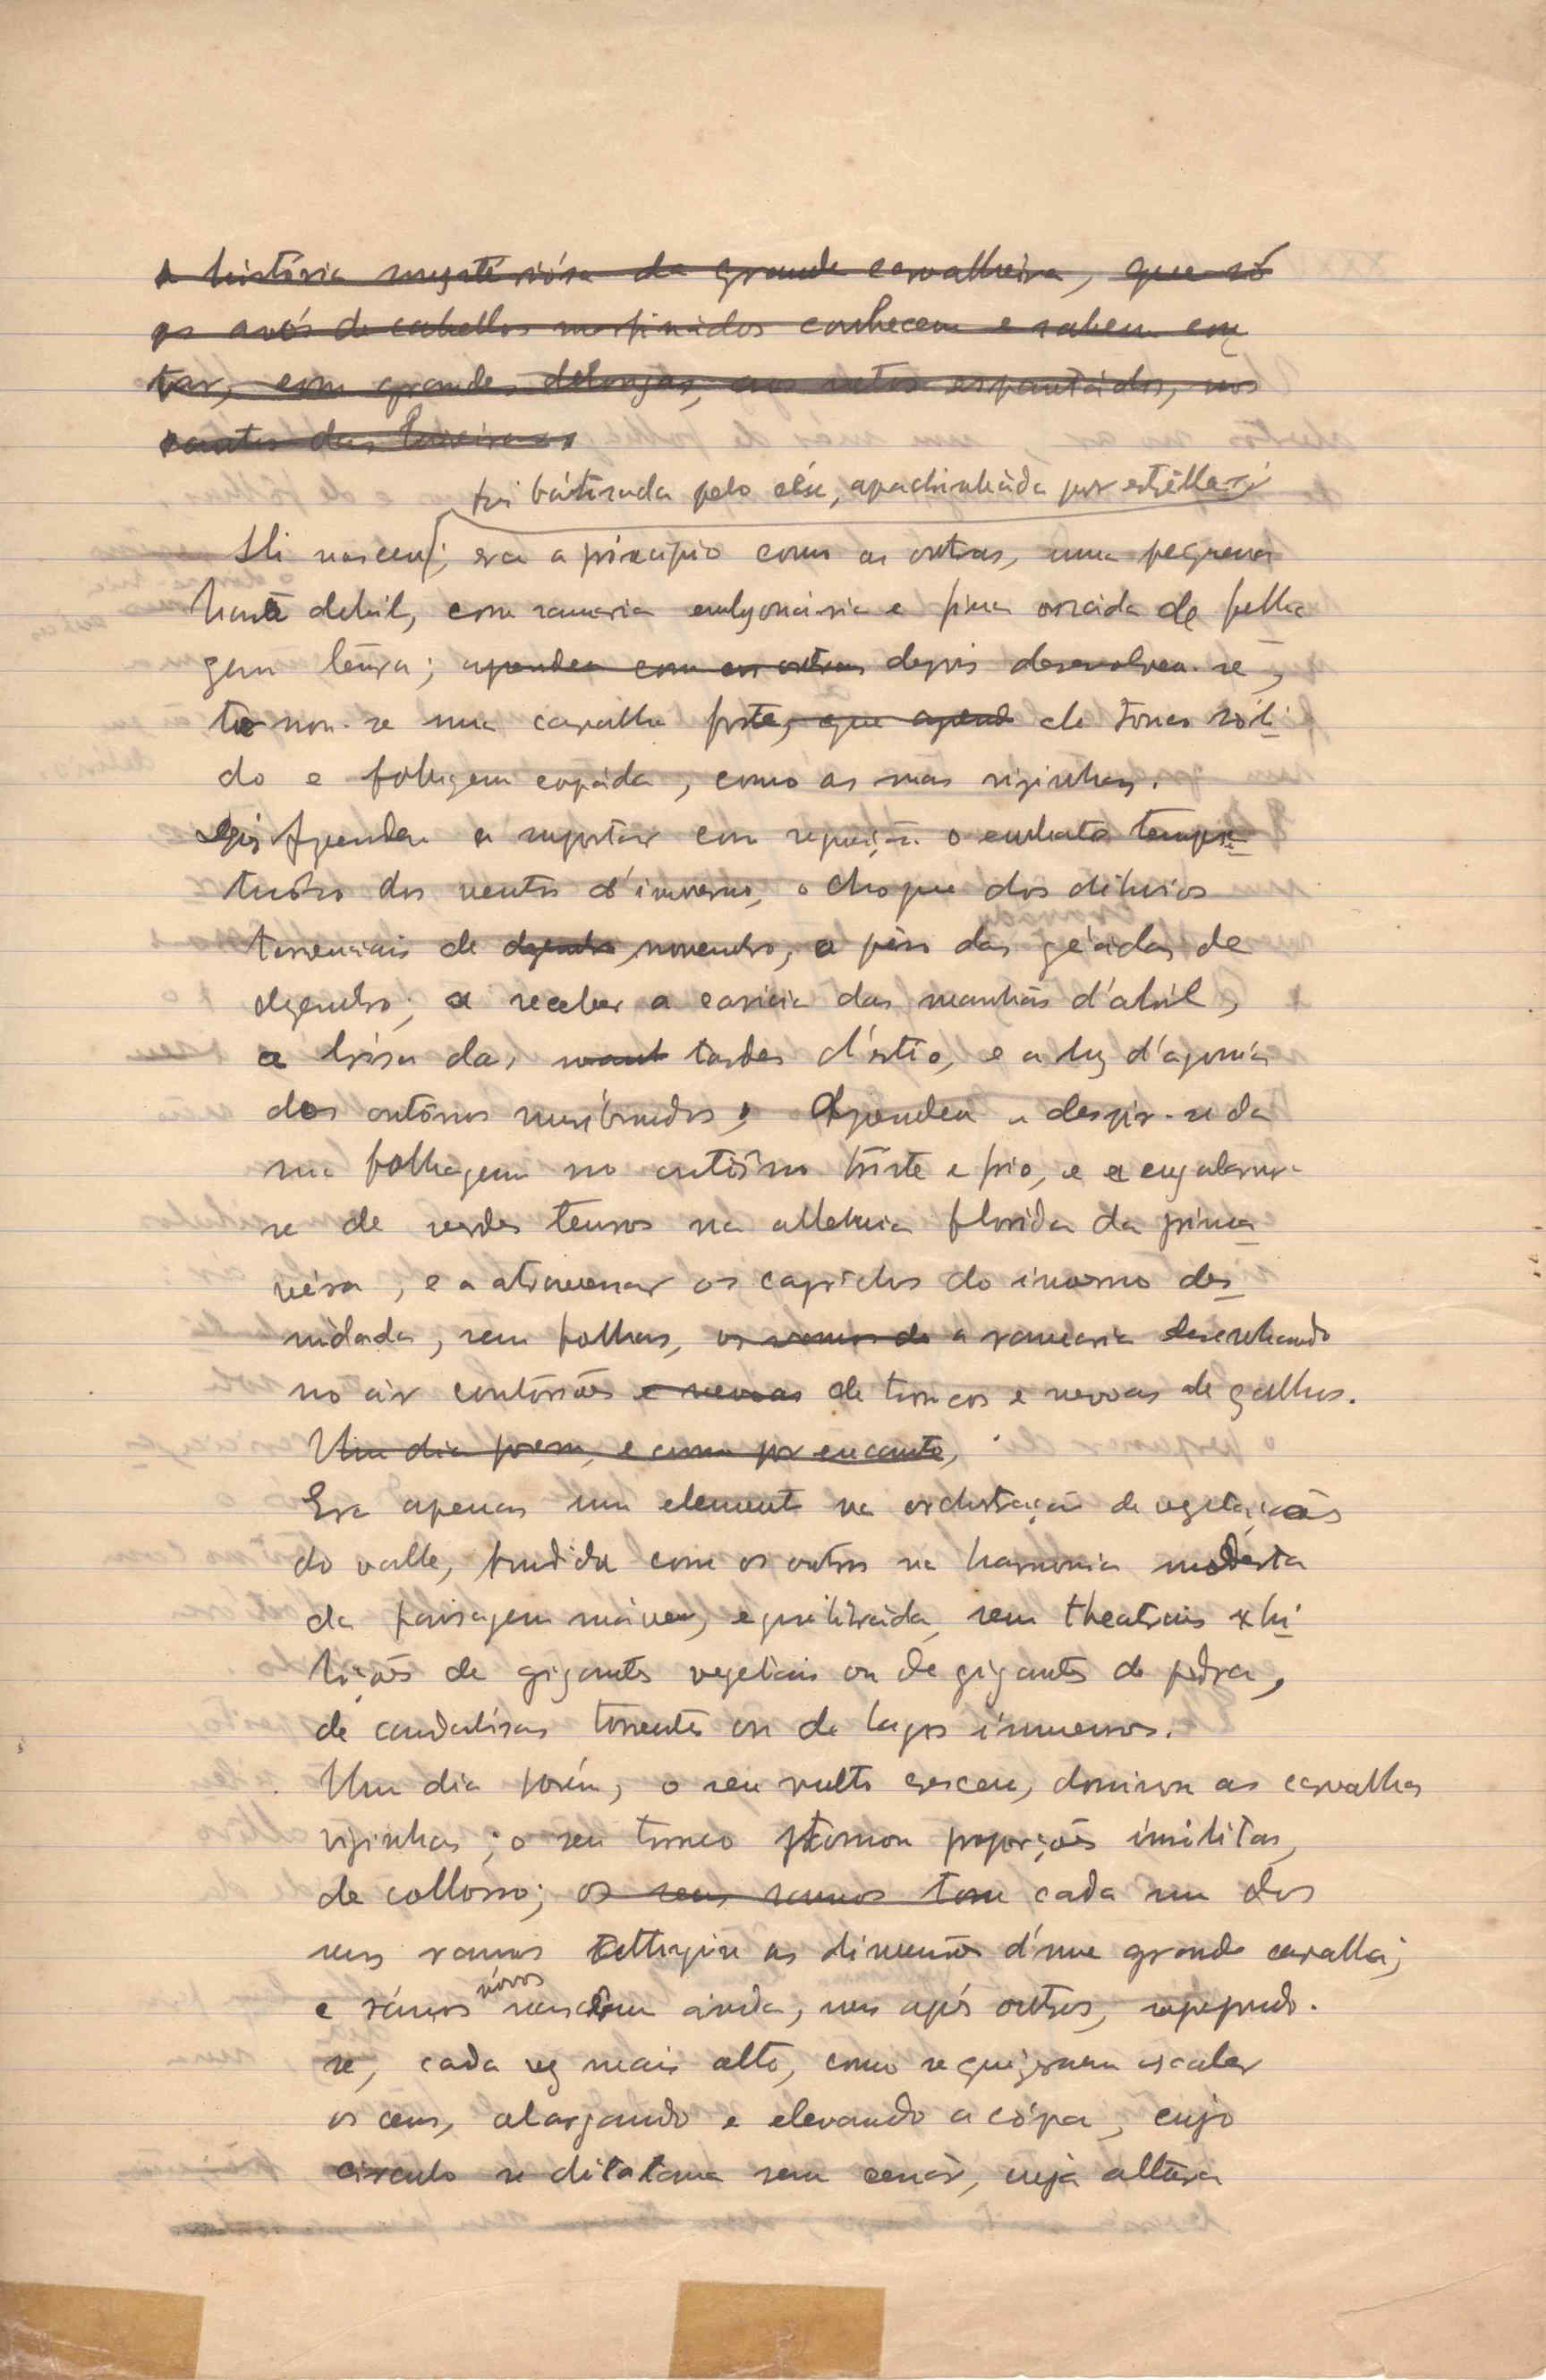 a história mysteriósa da grande carvalheira, que só
os avós de cabellos marfinádos conhecem e sabem con
tar, com grandes delongas, aos netos espantádos, nos
das
foi bátisada pelo céu, apadrinháda por estrêllas;
Ali nasceu; era a princípio como as outras, uma pequena
haste debil, com ramaria embryonária e fina de folha
gem tenra; aprendeu com as outras depois desenvolveu-se,
tornou-se uma carvalha forte, que aprend de tronco sóli
do e folhagem copáda, como as suas visinhas.
depois Aprendeu a suportar com o embate tempes
tuôso dos ventos d'inverno, o choque dos diluvios
torrenciais de dezembro novembro, o pêso das geádas de
dezembro; a receber a caricia das manhãs d'abril,
a brisa das manh tardes d'estio, e a luz d'agonia
dos outônos moribundos. Aprendeu a despir-se da
sua folhagem no outôno triste e frio, e a engalanar-
se de verdes tenros na alleluia florida da prima
véra, e a atravessar os caprichos do inverno des
nudada, sem folhas, os ramos de a ramaria desenhando
no ar contorsões e nervoas de troncos e nervoas de galhos.
Um dia porem, e como por encanto,
Era apenas um elemento na orchestração de vegetações
do valle, fundida com os outros na harmonia modésta
da paisagem suáve, equilibráda, sem theatrais exhi
bições de gigantes vegetais ou de gigantes de pedra,
de caudalósas torrentes ou de lagos immensos.
Um dia porém, o seu vulto cresceu, dominou as carvalhas
visinhas; o seu tronco tomou proporções insólitas,
de collosso; os seus ramos tom cada um dos
seus ramos attingiu as dimensões d'uma grande carvalha;
e rámos nóvos nasciam ainda, uns após outros,
se, cada vez mais alto, como se quizessem escalar
os ceus, alargando e elevando a cópa, cujo
circulo se dilatava sem cessár, cuja altura